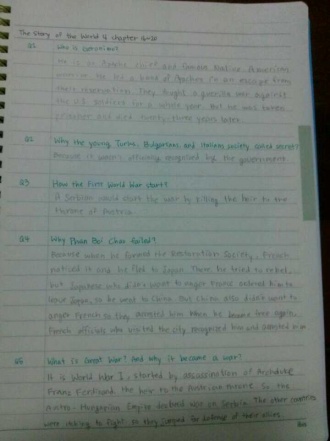 The Story of the World 4 chapter 16-20
Q1 Who is Geronimo?
He is an Apache chief and famous Native American
warrior. He led a band of Apaches in an escape from
their reservation. They fought a guerilla war against
the U.S. soldiers for a whole year. But he was taken
prisoner and died twenty-three years later.
Q2 Why the young Turks, Bulgarians and Italians society called secret?
Because it wasn't officially recognized by the government
Q3 How the First World War start?
A Serbian could start the war by killing the heir to the
throne of Austria
Q4 Why Phan Boi Chau failed?
Because when he formed the Restoration Society, French
noticed it and he fled to Japan. Then he tried to rebel,
but Japanese who didn't want to anger French ordered him to
leave Japan, so he went to China. But China also didn't want to
anger French so they arrested him. When he became free again,
French officials who visited the city recognized him and arrested
Q5 What is Great War? And why it became a war?
It is World War I, started by assassination of Archduke
Franz Ferdinand the heir to the Austrian throne. So the
Austro-Hungarian Empire declared war on Serbia. The other countries
were willing to fight so they joined for defense of their allies.